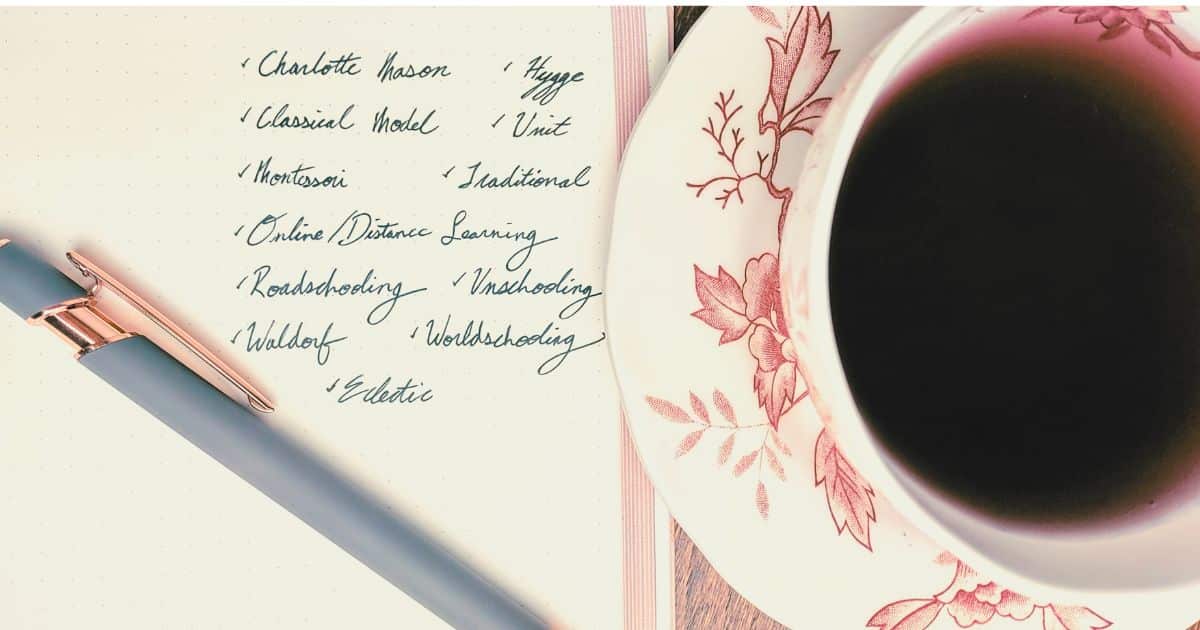 ✓ Charlotte Mason ✓ Hygge
✓ Classical Model ✓ Unit
✓ Montessori ✓ Traditional
✓ Online/Distance Learning
✓ Roadschooling ✓ Unschooling
✓ Waldorf ✓ Worldschooling
✓ Eclectic